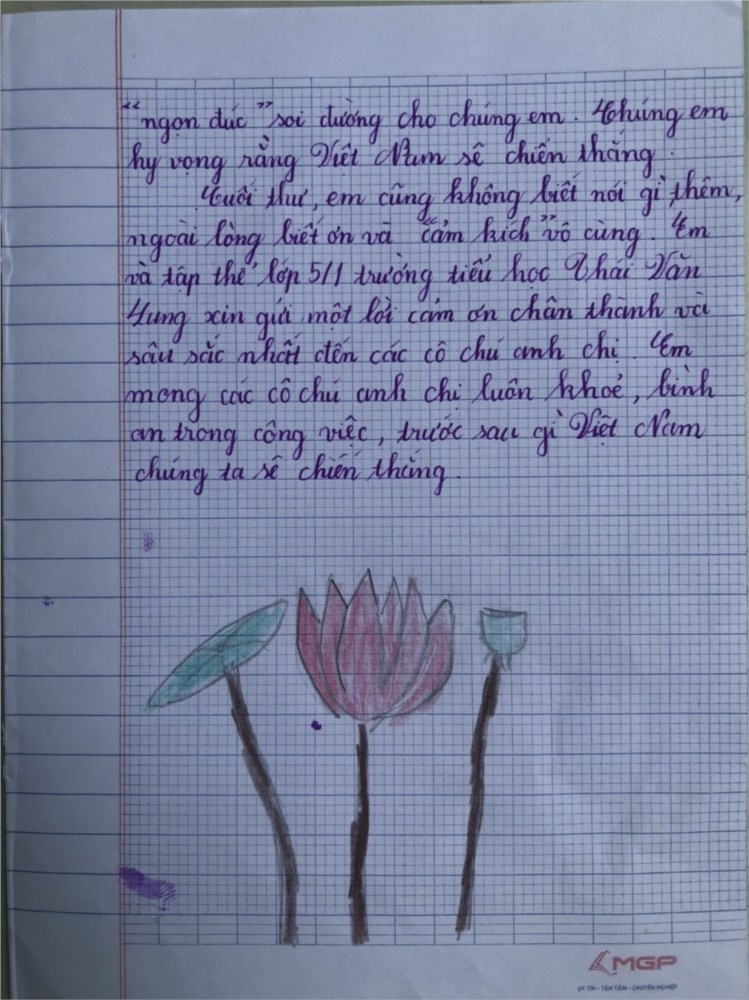 “ngọn đuc” soi đường cho chúng em. Chúng em
hy vọng rằng Việt Nam sẽ chiến thắng.
Cuối thư, em cũng không biết nói gì thêm,
ngoài lòng biết ơn và “cảm kích” vô cùng. Em
và tập thể lớp 5/1 trường tiểu học Thái Văn
Lung xin gửi một lời cảm ơn chân thành và
sâu sắc nhất đến các cô chú anh chị. Em
mong các cô chú anh chị luôn khoẻ, bình
an trong công việc, trước sau gì Việt Nam
chúng ta sẽ chiến thắng.
MGP
UY TÍN - TẬN TÂM - CHUYÊN NGHIỆP